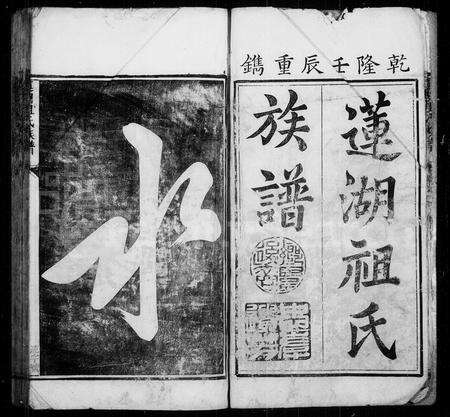 乾隆壬辰重鐫
蓮湖祖氏
族譜
水